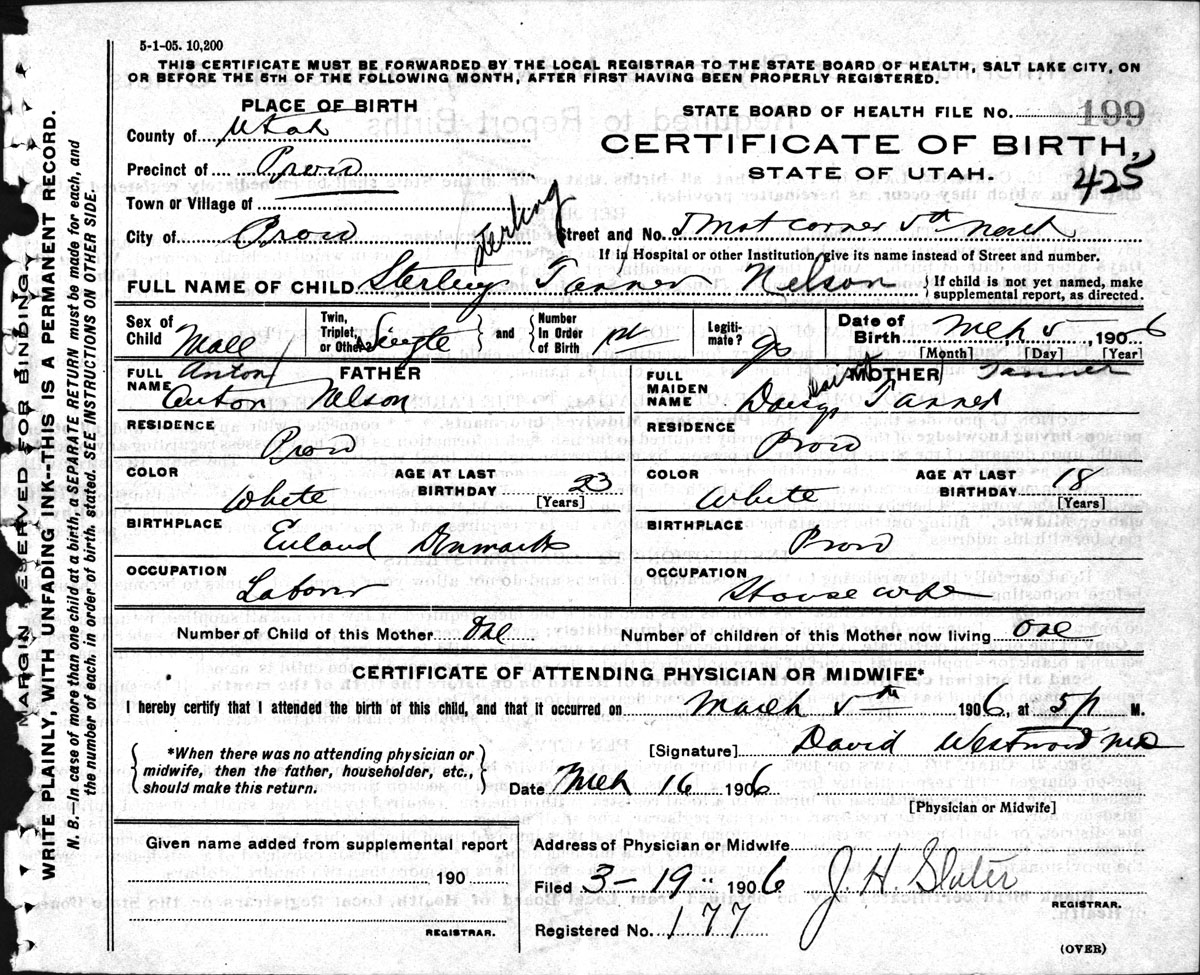 5-1-05. 10,200
THIS CERTIFICATE MUST BE FORWARDED BY THE LOCAL REGISTRAR TO THE STATE BOARD OF HEALTH, SALT LAKE CITY, ON
OR BEFORE THE 5TH OF THE FOLLOWING MONTH, AFTER FIRST HAVING BEEN PROPERLY REGISTERED.
MARGIN RESERVED FOR BINDING.
WRITE PLAINLY, WITH UNFADING INK--THIS IS A PERMANENT RECORD.
N. B.—In case of more than one child at a birth, a SEPARATE RETURN must be made for each, and
the number of each, in order of birth, stated. SEE INSTRUCTIONS ON OTHER SIDE.
PLACE OF BIRTH
County of Utah
Precinct of Provo
Town or Village of
City of Provo
STATE BOARD OF HEALTH FILE NO. 199
CERTIFICATE OF BIRTH,
STATE OF UTAH. 425
Sterling
Street and No. corner 5th North
If in Hospital or other Institution, give its name instead of Street and number.
FULL NAME OF CHILD Sterling Tanner Nelson
If child is not yet named, make
supplemental report, as directed.
Sex of Child Male
Twin, Triplet, or Other? Single
and
Number In Order of Birth 1st
Legitimate?
Date of Birth Mch 5, 1906
[Month] [Day] [Year]
FATHER
FULL NAME Anton
Anton Nelson
RESIDENCE
Provo
COLOR
White
AGE AT LAST BIRTHDAY 23
[Years]
BIRTHPLACE
Denmark
OCCUPATION
Labour
MOTHER
Tanner
FULL MAIDEN NAME Daisy Tanner
RESIDENCE
Provo
COLOR
White
AGE AT LAST BIRTHDAY 18
[Years]
BIRTHPLACE
Provo
OCCUPATION
House wife
Number of Child of this Mother One
Number of children of this Mother now living one
CERTIFICATE OF ATTENDING PHYSICIAN OR MIDWIFE*
I hereby certify that I attended the birth of this child, and that it occurred on March 5th 1906, at 5 p M.
*When there was no attending physician or
midwife, then the father, householder, etc.,
should make this return.
[Signature] David Westwood MD
Date Mch 16 1906
[Physician or Midwife]
Given name added from supplemental report
190
REGISTRAR.
Address of Physician or Midwife
Filed 3-19 1906 J. H. Slater
REGISTRAR.
Registered No. 177
(OVER)